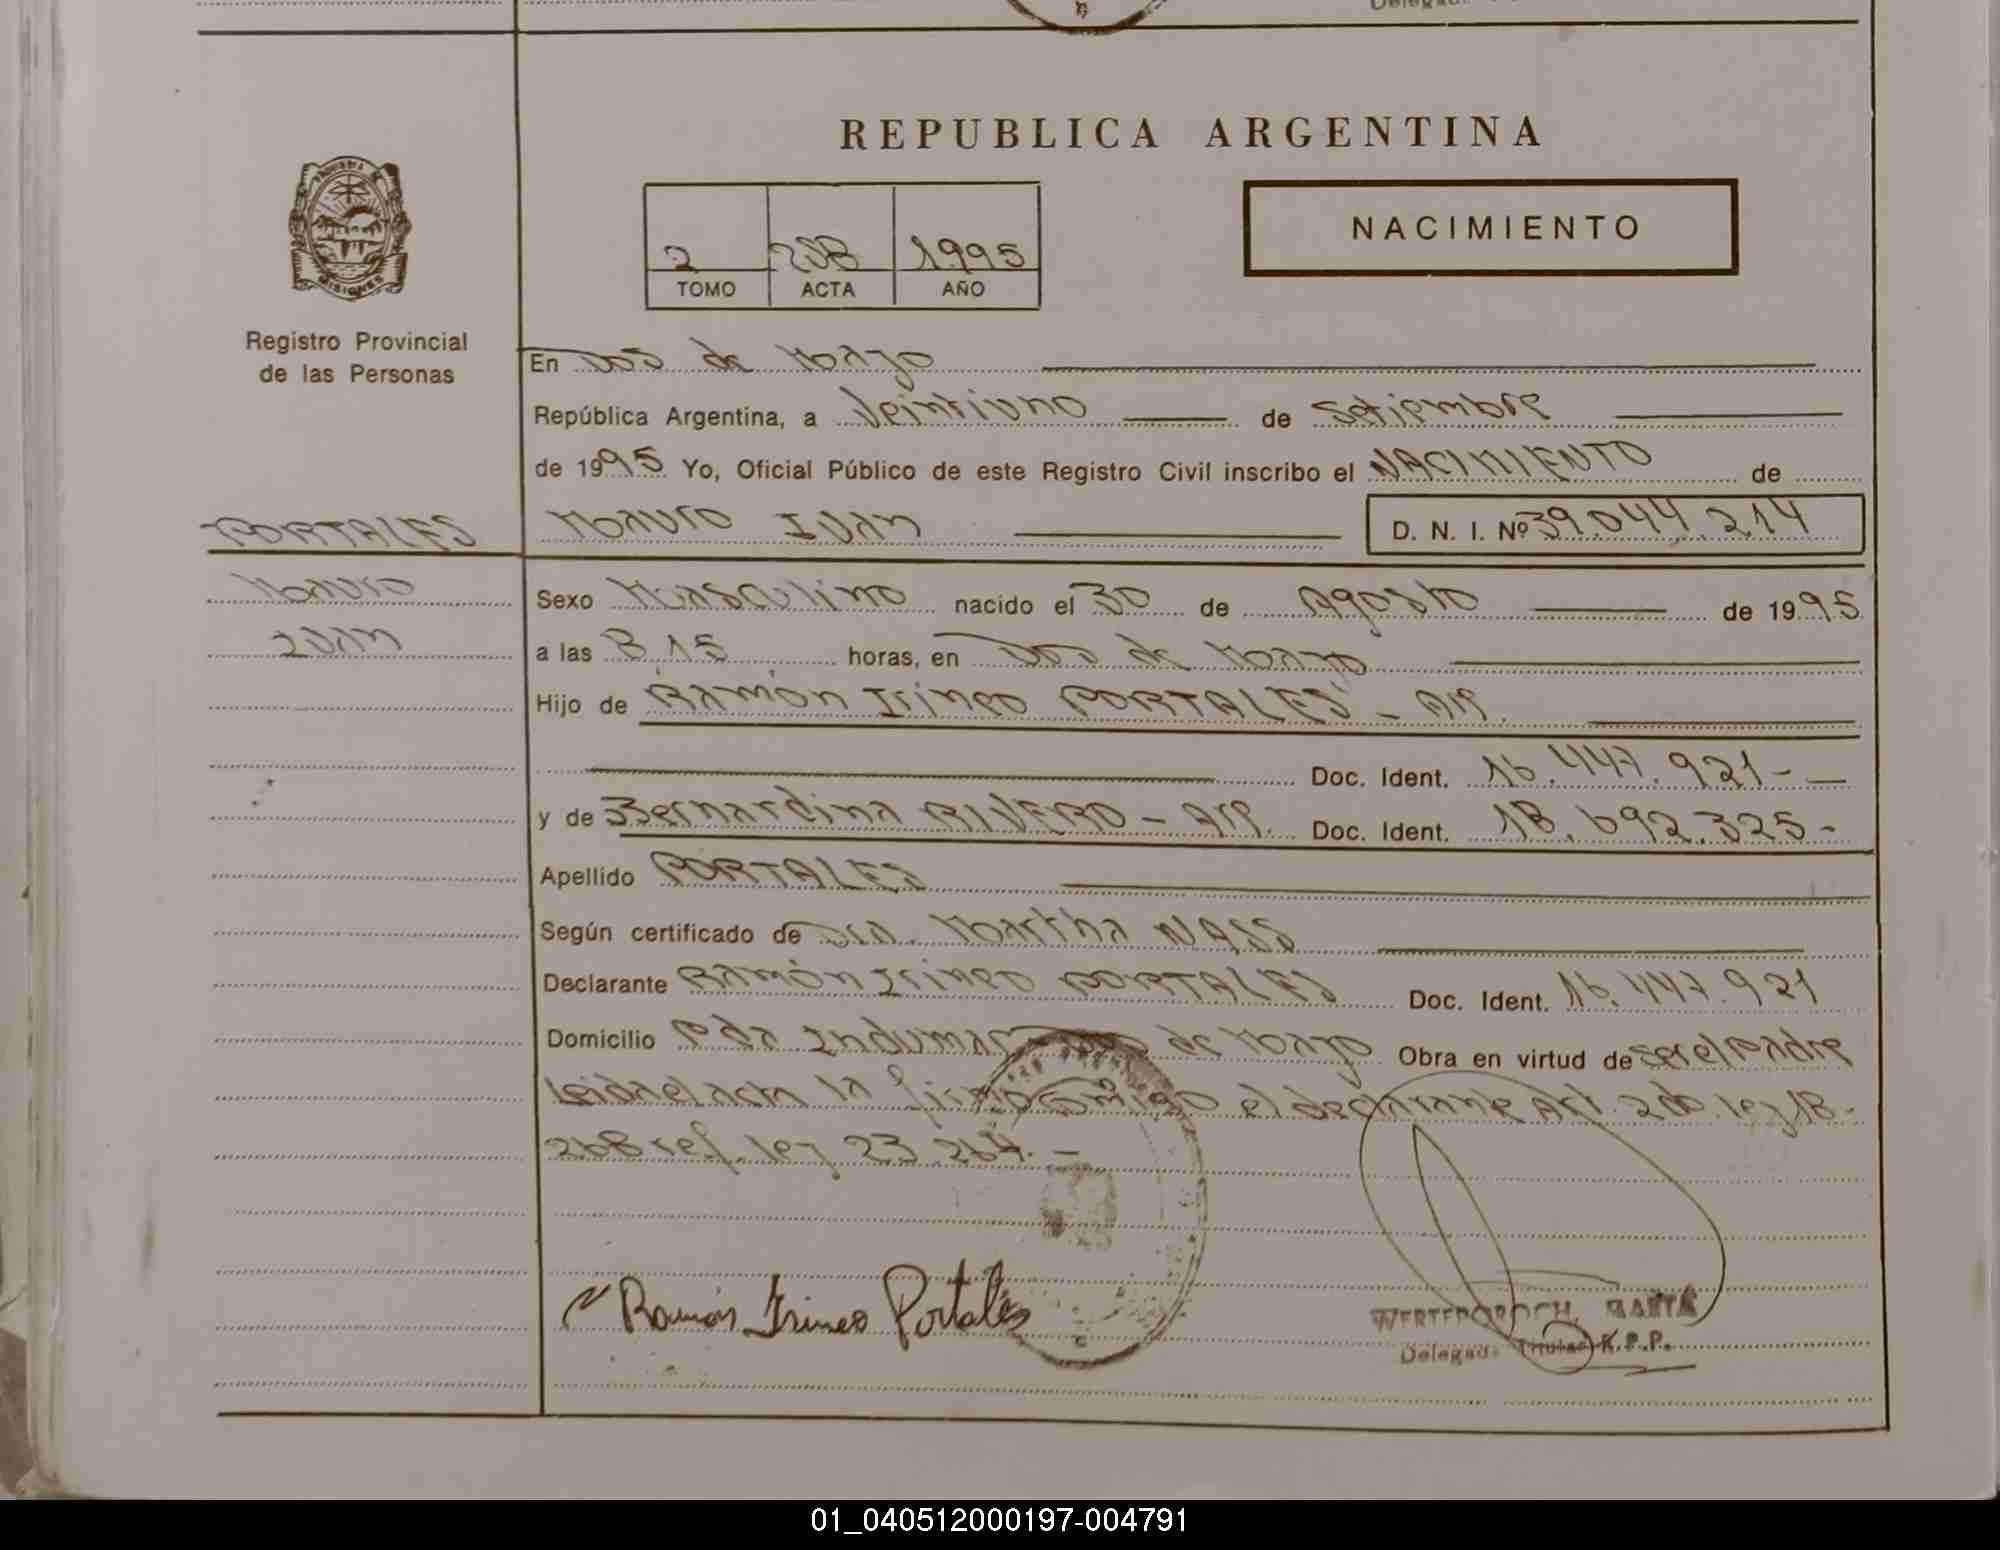 REPUBLICA ARGENTINA
2 208 1995
TOMO ACTA AÑO
NACIMIENTO
MISIONES
Registro Provincial
de las Personas
PORTALES
Mauro
Iván
En Dos de Mayo
República Argentina, a Veintiuno de Setiembre
de 1995 Yo, Oficial Público de este Registro Civil inscribo el NACIMIENTO de
Mauro Iván D. N. I. Nº 39.044.214
Sexo Masculino nacido el 30 de Agosto de 1995
a las 8,15 horas, en Dos de Mayo
Hijo de Ramón Irineo PORTALES - Arg.
Doc. Ident. 16.447.921-
y de Bernardina RIVERO - Arg. Doc. Ident. 18.692.325-
Apellido PORTALES
Según certificado de Dra. Martha NASS
Declarante Ramón Irineo PORTALES Doc. Ident. 16.447.921
Domicilio Pda Indumar Dos de Mayo Obra en virtud de ser el Padre
Leida el acta la firma conmigo el declarante Art. 2do ley 18.
268 ref. ley 23.264.-
Ramón Irineo Portales
Titular R.P.P.
01_040512000197-004791